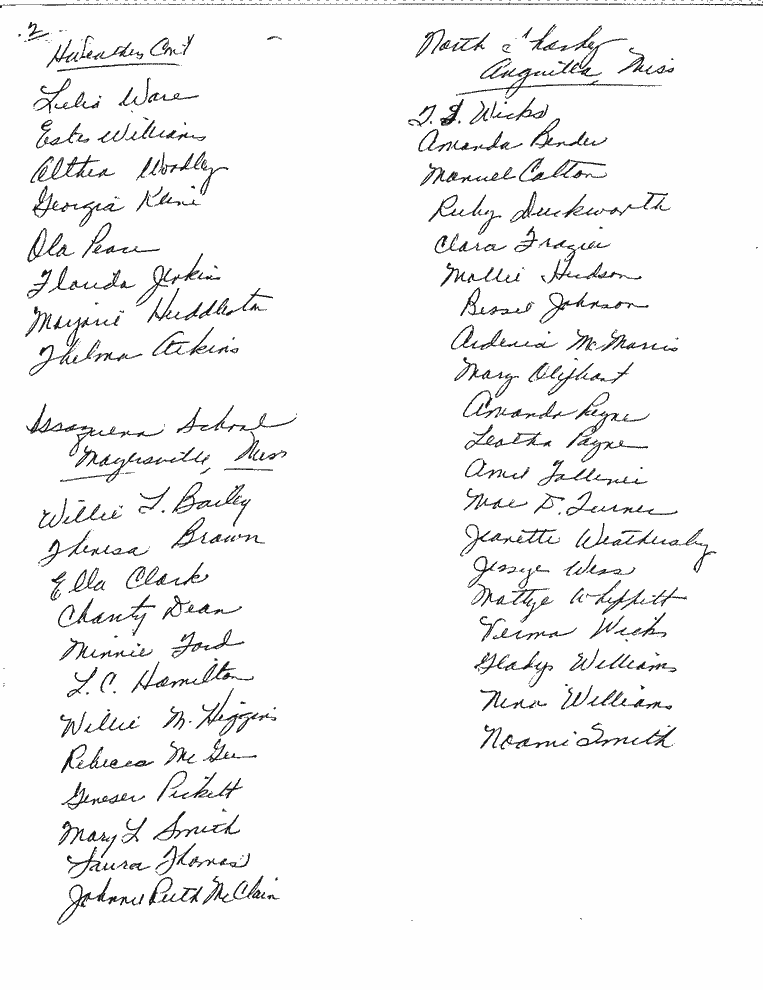 2
H. Weathers Con't
Lelia Ware
Estes Williams
Althea Woodley
Georgia Kline
Ola Peace
Florida Jenkins
Marjorie Huddleston
Thelma Atkins
Issaquena School
Mayersville, Miss
Willie L. Bailey
Theresa Brown
Ella Clark
Charity Dean
Minnie Ford
L.C. Hamilton
Willie M. Higgins
Rebecca McGee
Geneser Pickett
Mary L Smith
Laura Thomas
Johnnie Ruth McClain
North Sharkey
Anguilla, Miss
Wicks
Amanda Bender
Manuel Colton
Ruby Duckworth
Clara Frazier
Mollie Hudson
Bessie Johnson
Ardenia McMorris
Mary Oliphant
Amanda Payne
Leatha Payne
Tolliver
Mae D. Turner
Jeanette Weathersby
Jessye Wess
Mattye Whippitt
Verma Wicks
Gladys Williams
Nina Williams
Noami Smith